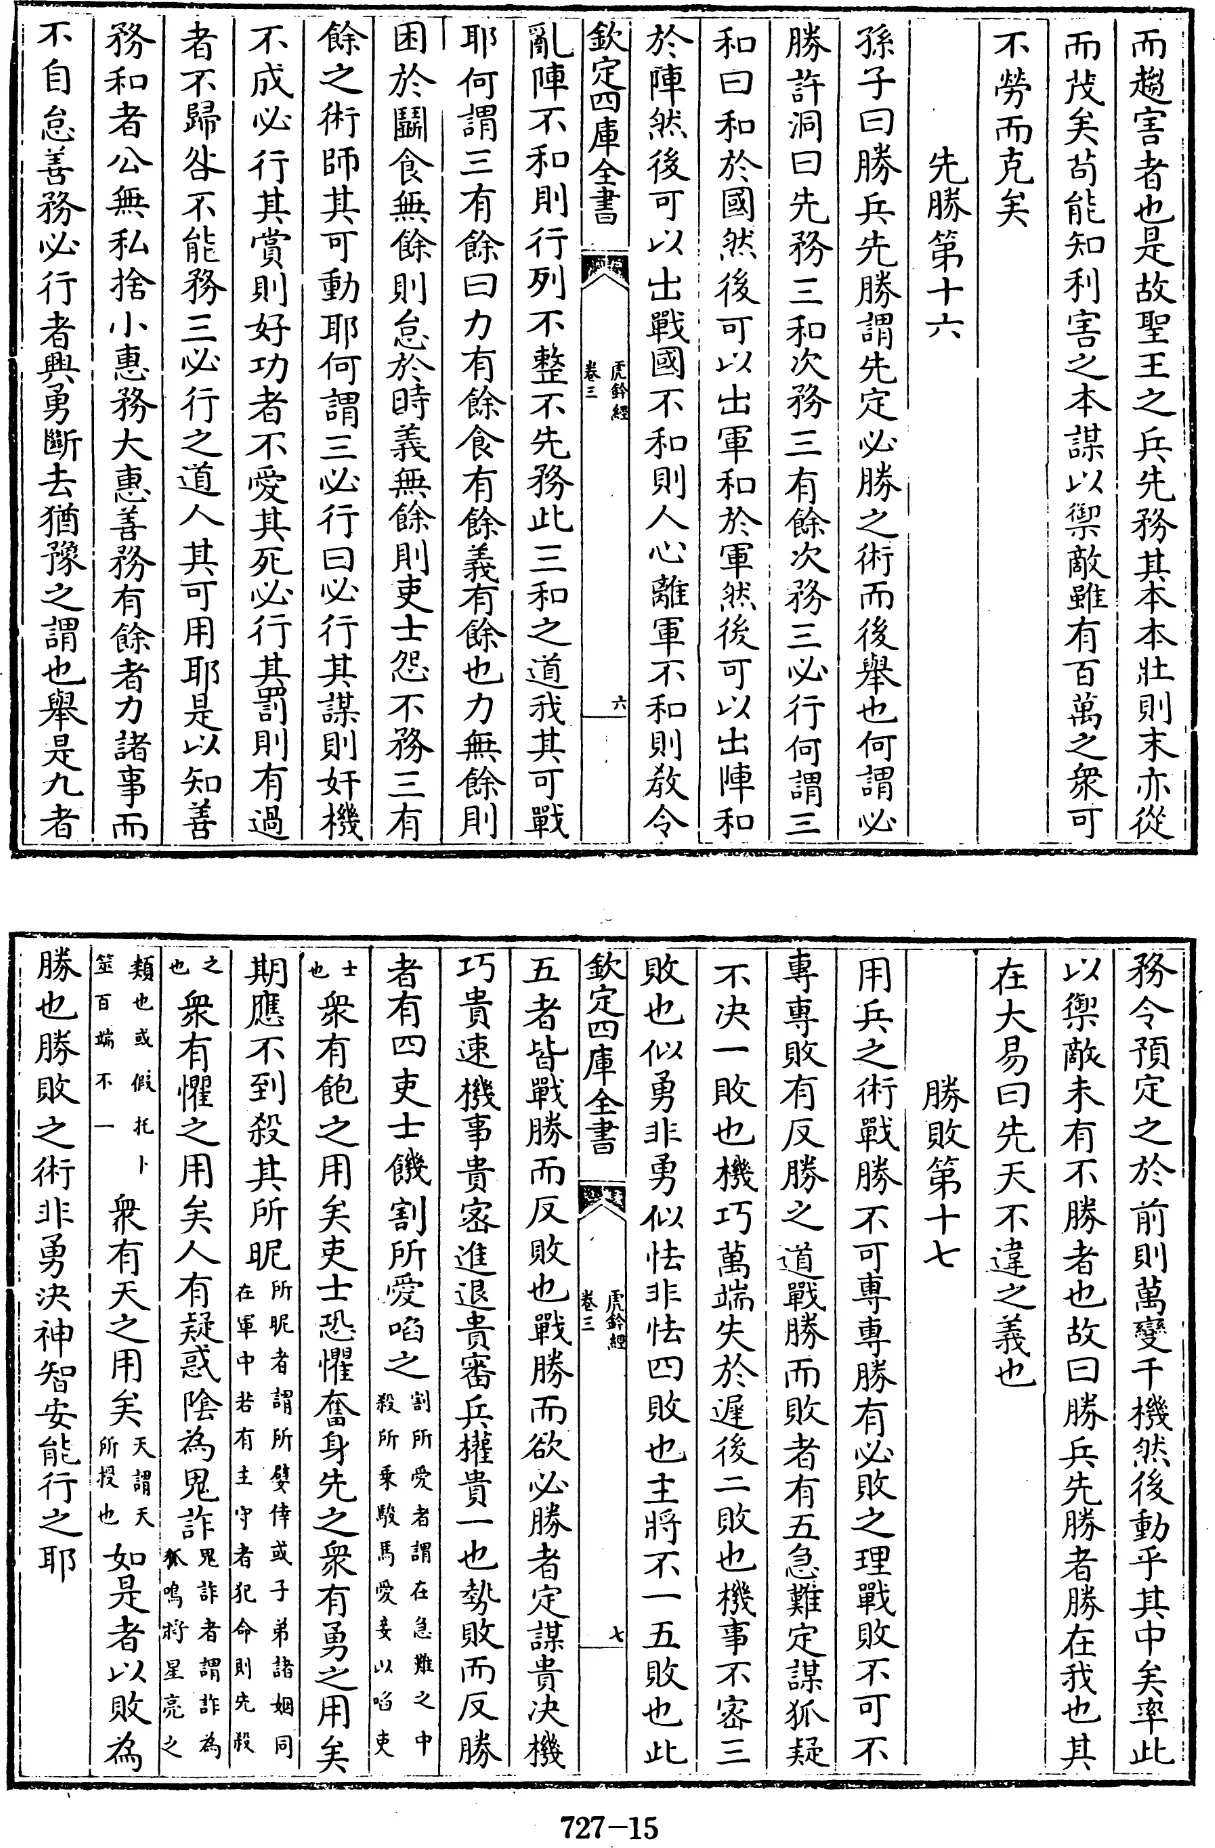 而趨害者也是故聖王之兵先務其本本壯則末亦從
而茂矣苟能知利害之本謀以禦敵雖有百萬之衆可
不勞而克矣
先勝第十六
孫子曰勝兵先勝謂先定必勝之術而後舉也何謂必
勝許洞曰先務三和次務三有餘次務三必行何謂三
和曰和於國然後可以出軍和於軍然後可以出陣和
於陣然後可以出戰國不和則人心離軍不和則教令
欽定四庫全書
虎鈐經
卷三
六
亂陣不和則行列不整不先務此三和之道我其可戰
耶何謂三有餘曰力有餘食有餘義有餘也力無餘則
困於鬭食無餘則怠於時義無餘則吏士怨不務三有
餘之術師其可動耶何謂三必行曰必行其謀則奸機
不成必行其賞則好功者不愛其死必行其罰則有過
者不歸咎不能務三必行之道人其可用耶是以知善
務和者公無私捨小惠務大惠善務有餘者力諸事而
不自怠善務必行者興勇斷去猶豫之謂也舉是九者
務令預定之於前則萬變千機然後動乎其中矣率此
以禦敵未有不勝者也故曰勝兵先勝者勝在我也其
在大易曰先天不違之義也
勝敗第十七
用兵之術戰勝不可專專勝有必敗之理戰敗不可不
專專敗有反勝之道戰勝而敗者有五急難定謀狐疑
不決一敗也機巧萬端失於遲後二敗也機事不密三
敗也似勇非勇似怯非怯四敗也主將不一五敗也此
欽定四庫全書
虎鈐經
卷三
七
五者皆戰勝而反敗也戰勝而欲必勝者定謀貴決機
巧貴速機事貴密進退貴審兵權貴一也勢敗而反勝
者有四吏士饑割所愛啗之割所愛者謂在急難之中殺所乘駿馬愛妾以啗吏
士也衆有飽之用矣吏士恐懼奮身先之衆有勇之用矣
期應不到殺其所昵所昵者謂所嬖倖或子弟諸姻同在軍中若有主守者犯命則先殺
之也衆有懼之用矣人有疑惑陰為鬼詐鬼詐者謂詐為狐鳴將星亮之
類也或假托卜筮百端不一衆有天之用矣天謂天所授也如是者以敗為
勝也勝敗之術非勇決神智安能行之耶
727-15